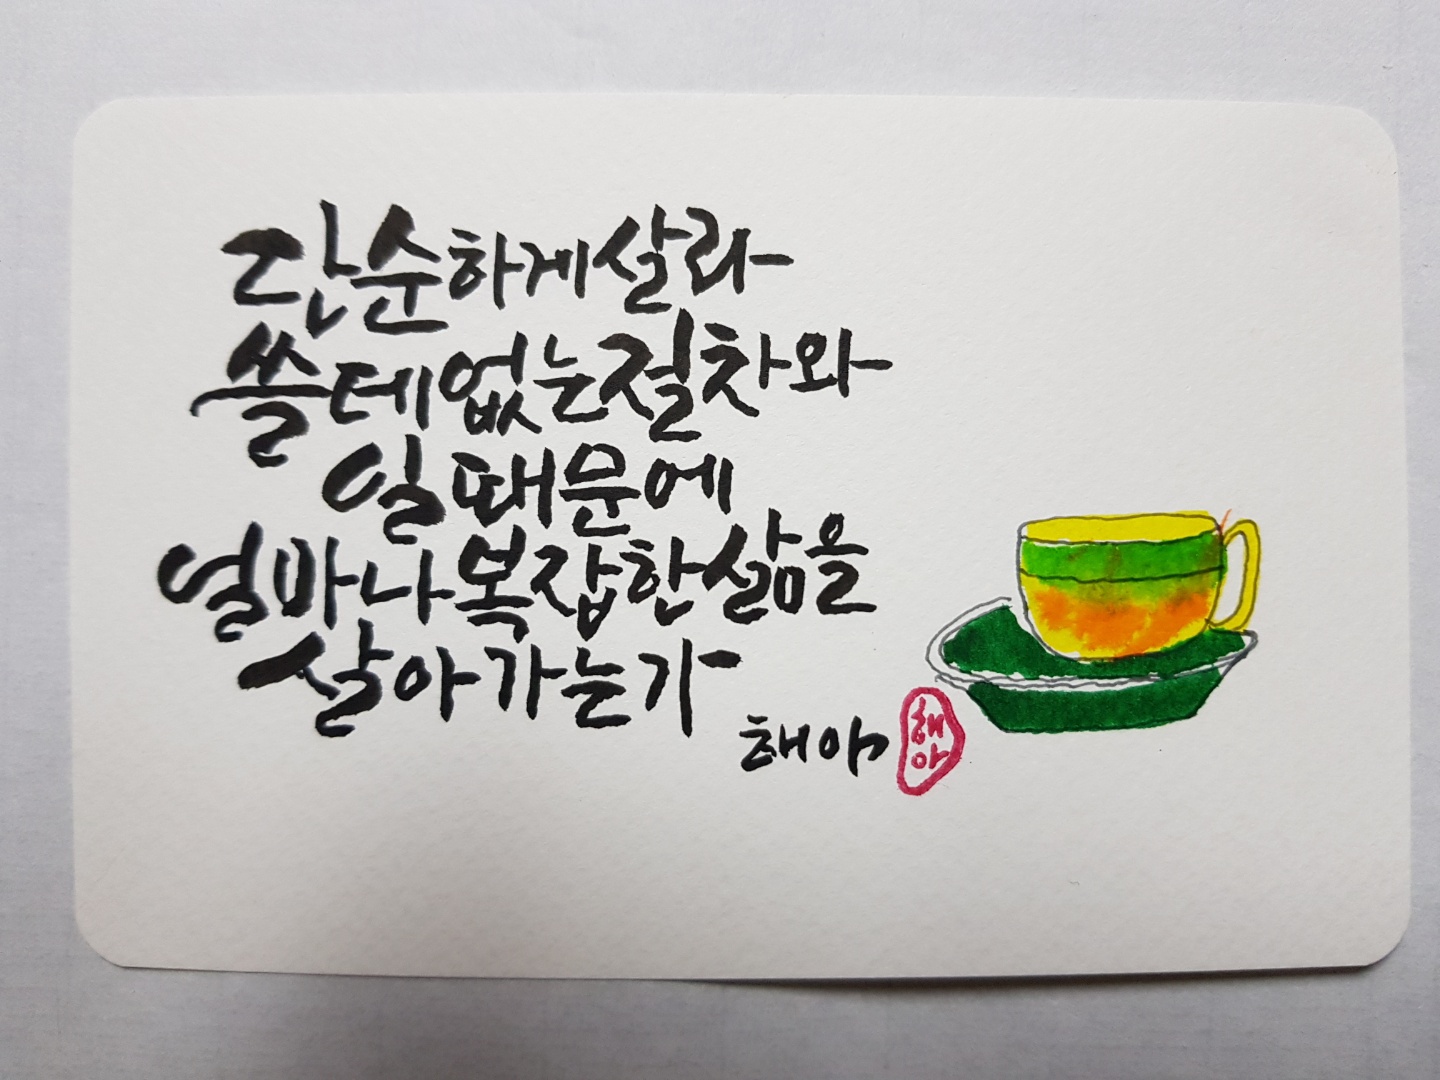 단순하게 살라
쓸테없는 절차와
일 때문에
얼마나 복잡한 삶을
살아가는가
해야
해야